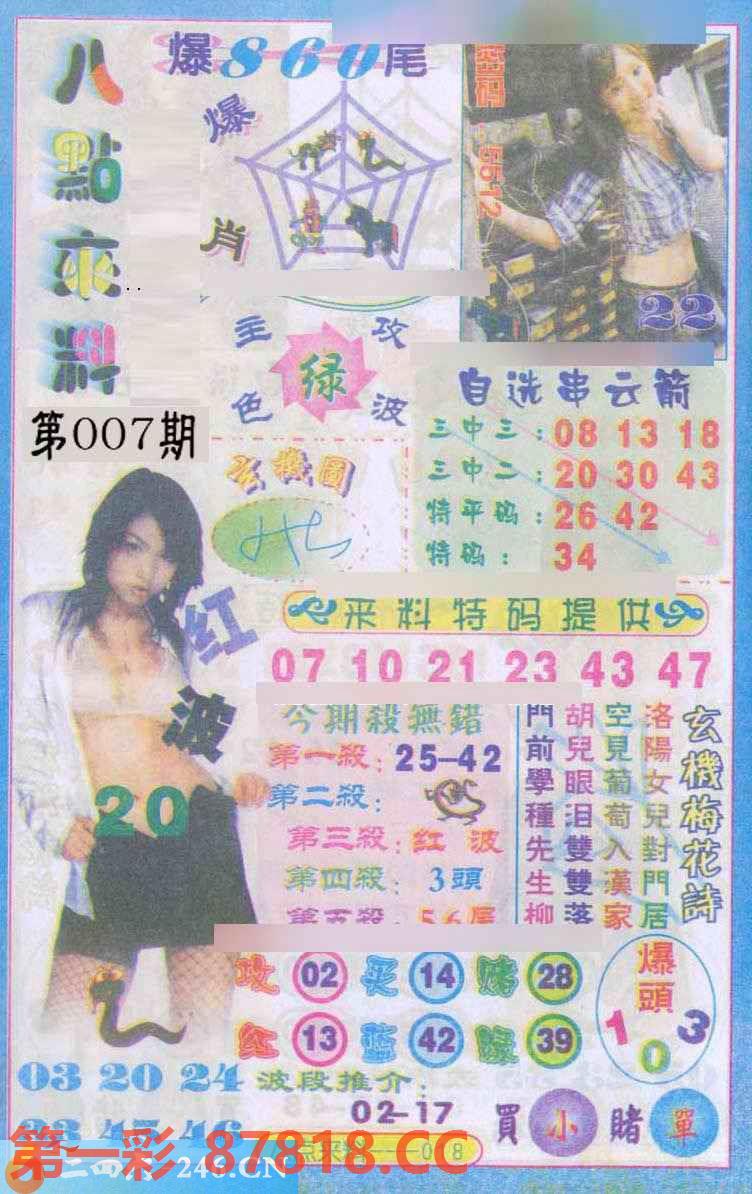 八點來料
第007期
爆860尾
爆肖
密码:5512
22
主攻
绿
色波
自选串云箭
三中三:08 13 18
三中二:20 30 43
特平码:26 42
特码:34
玄機圖
来料特码提供
07 10 21 23 43 47
红波
20
今期殺無錯
第一殺:25-42
第二殺:
第三殺:红波
第四殺:3頭
第五殺:56尾
玄機梅花詩
洛陽女兒對門居
空見葡萄入漢家
胡兒眼泪雙雙落
門前學種先生柳
攻02买14赌28
红13蓝42绿39
爆頭
1 0 3
03 20 24
波段推介:
02-17
買小賭單
第一彩 87818.CC
246.CN